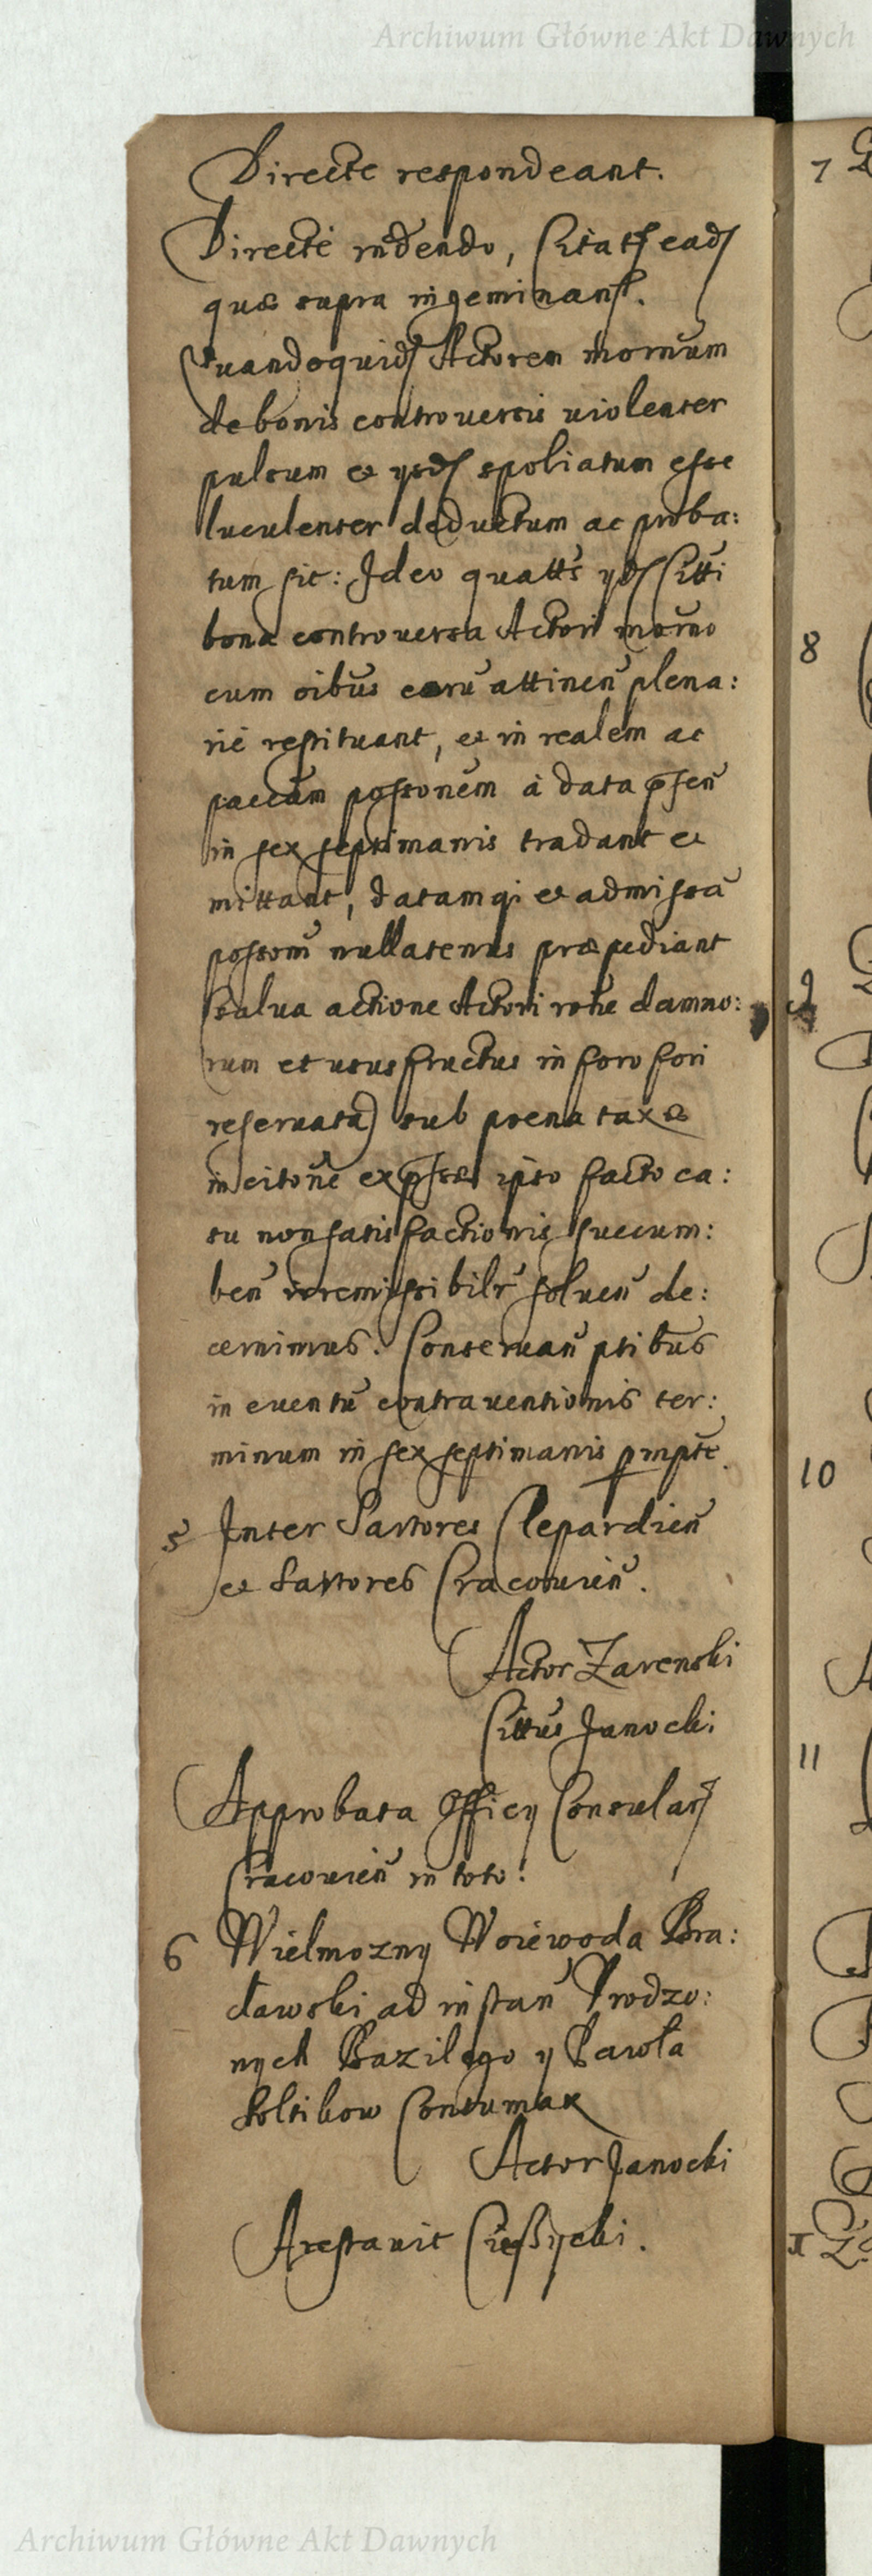 Archiwum Główne Akt Dawnych
Directe respondeant.
Directè rńdendo, Citati ead
quæ supra ingeminant.
Quandoquid Actorem modernum
de bonis controversis violenter
pulsum et ysd spoliatum esse
luculenter deductum ac proba:
tum sit: Ideo quatts yd Citti
bona controversa Actori morno
cum oibus earu attinen plena:
rie restituant, et in realem ac
paccam possonem à data psen
in sex septimanis tradant et
mittant, datamqi et admissa
possom nullatenus præpediant
salva actione Actori rone damno:
rum et ususfructus in foro fori
reservata) sub poena taxæ
in citone expssæ ipso facto ca:
su non satisfactionis succum:
ben irremissibilr solven de:
cernimus. Conservan ptibus
in eventu contraventionis ter:
minum in sex septimanis pmpte.
5 Inter Sartores Clepardien
et Sartores Cracovien.
Actor Zarenski
Cittus Janocki
Approbata Officy Consular
Cracovien in toto.
6 Wielmozny Woiewoda Bra:
cławski ad instan Vrodzo:
nych Bazilego y Pawła
Soltikow Contumax
Actor Janocki
Arestavit Cieszycki.
7
8
9
10
11
Archiwum Główne Akt Dawnych